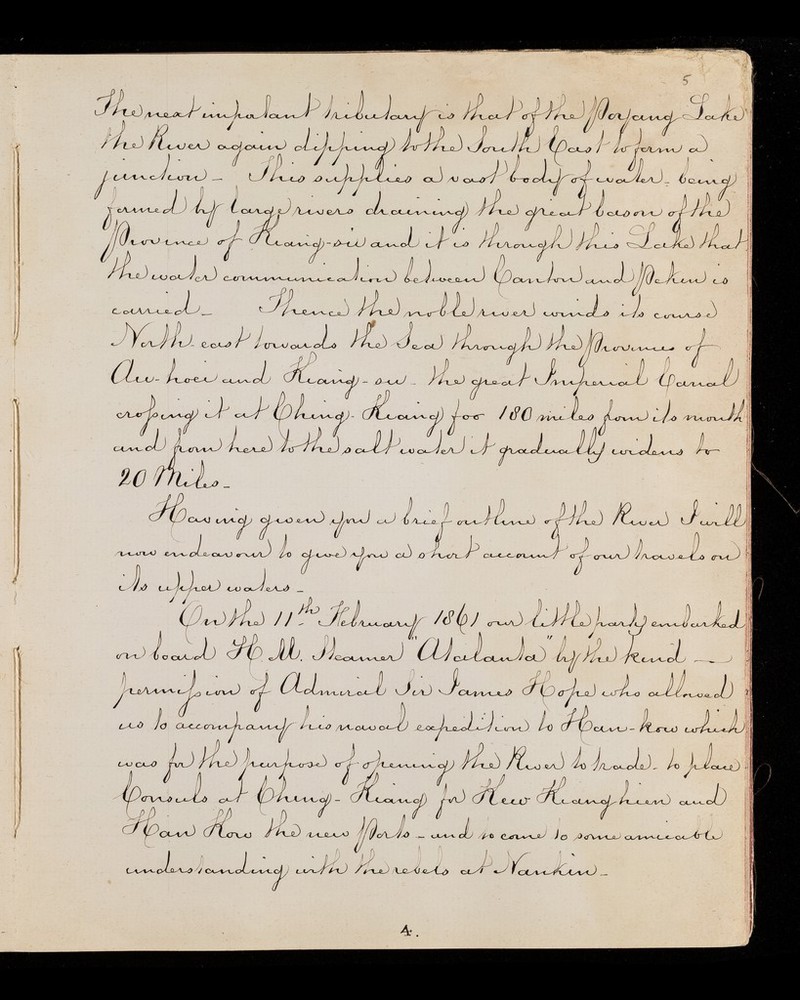 5
The next important tributary is that of the Poyang Lake
the River again dipping to the South East to form a
junction – This supplies a vast body of water – being
formed by large rivers draining the great bason of the
Province of Kiang-sii and it is through this Lake that
the water communication between Canton and Pekin is
carried – Thence the noble river winds its course
North-east towards the Sea through the Provinces of
An-hoei and Kiang-su – the great Imperial Canal
crossing it at Ching-Kiang foo 180 miles from its mouth
and from here to the salt water it gradually widens to
20 Miles –
Having given you a brief outline of the River I will
now endeavour to give you a short account of our travels on
its upper waters –
On the 11th February 1861 our little party embarked
on board H.M. Steamer "Atalanta" by the kind —
permission of Admiral Sir James Hope who allowed
us to accompany his naval expedition to Han-kow which
was for the purpose of opening the River to trade – to place
Consuls at Ching-Kiang for Kew Kiang hien and
Han Kow the new Ports – and to come to some amicable
understanding with the rebels at Nankin –
4.